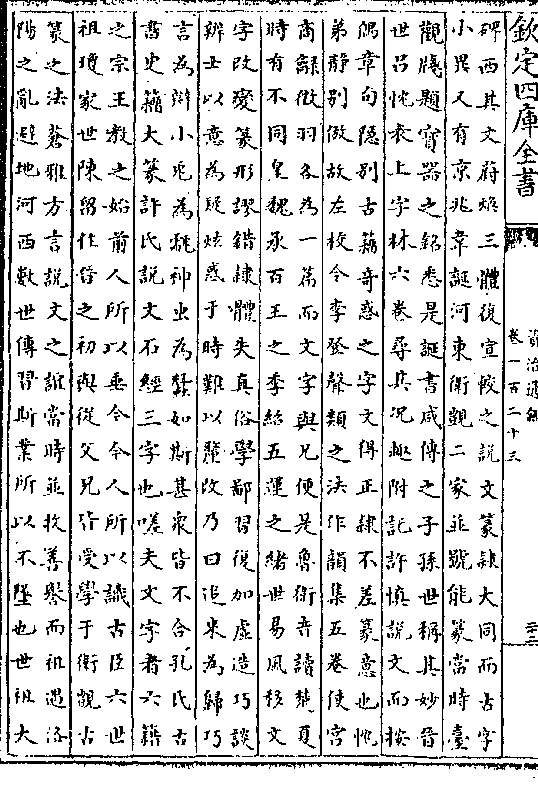 欽定四庫全書
資治通鑑
卷一百二十三
碑西其文蔚焕三體復宣較之說文篆隸大同而古字
小異又有京兆韋誕河東衛覬二家並號能篆當時臺
觀牓題寶器之銘悉是誕書咸傳之子孫世稱其妙晉
世吕忱表上字林六卷尋其况趣附託許慎說文而按
偶章句隱别古籀奇惑之字文得正隸不差篆意也忱
弟靜别倣故左校令李登聲類之法作韻集五卷使宫
商龣徵羽各為一篇而文字與兄便是魯衛音讀楚夏
時有不同皇魏承百王之季紹五運之緒世易風移文
字改變篆形謬錯隸體失真俗學鄙習復加虚造巧談
辨士以意為疑炫惑于時難以釐改乃曰追來為歸巧
言為辯小兎為䨲神虫為蠶如斯甚衆皆不合孔氏古
書史籀大篆許氏說文石經三字也嗟夫文字者六籍
之宗王教之始前人所以垂今今人所以識古臣六世
祖瓊家世陳留往晉之初與從父兄皆受學于衛覬古
篆之法蒼雅方言說文之誼當時並收善譽而祖遇洛
陽之亂避地河西數世傳習斯業所以不墜也世祖大